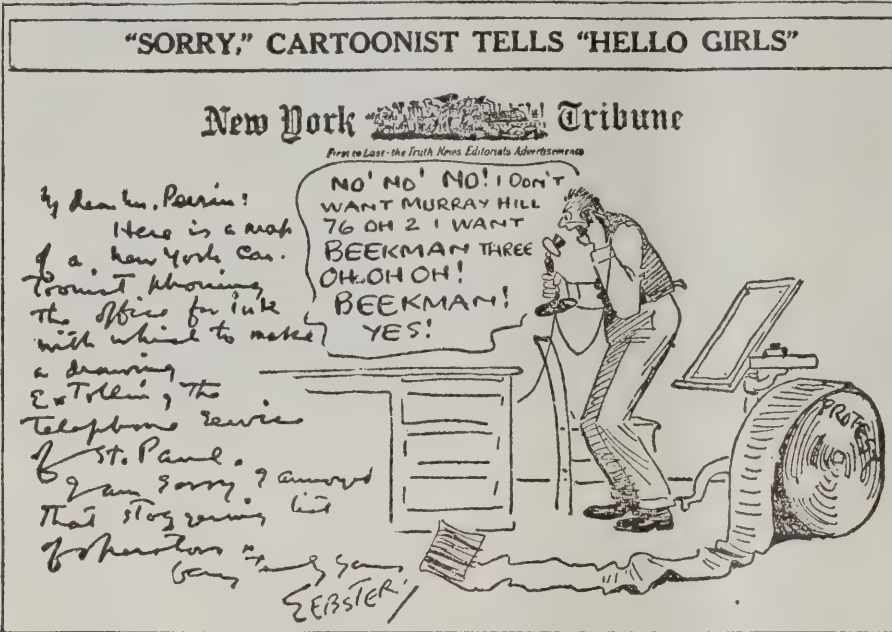 "SORRY," CARTOONIST TELLS "HELLO GIRLS"
New York Tribune
First to Last - the Truth News Editorials Advertisements
My dear Mr. Perrin:
Here is a map
of a New York Car-
toonist phoning
the office for ink
with which to make
a drawing
Extolling the
telephone service
of St. Paul.
I am sorry I annoyed
that staggering list
of operators
Very Truly yours
WEBSTER
NO! NO! NO! I DON'T
WANT MURRAY HILL
76 OH 2 I WANT
BEEKMAN THREE
OH.OH OH!
BEEKMAN!
YES!
PROTEST